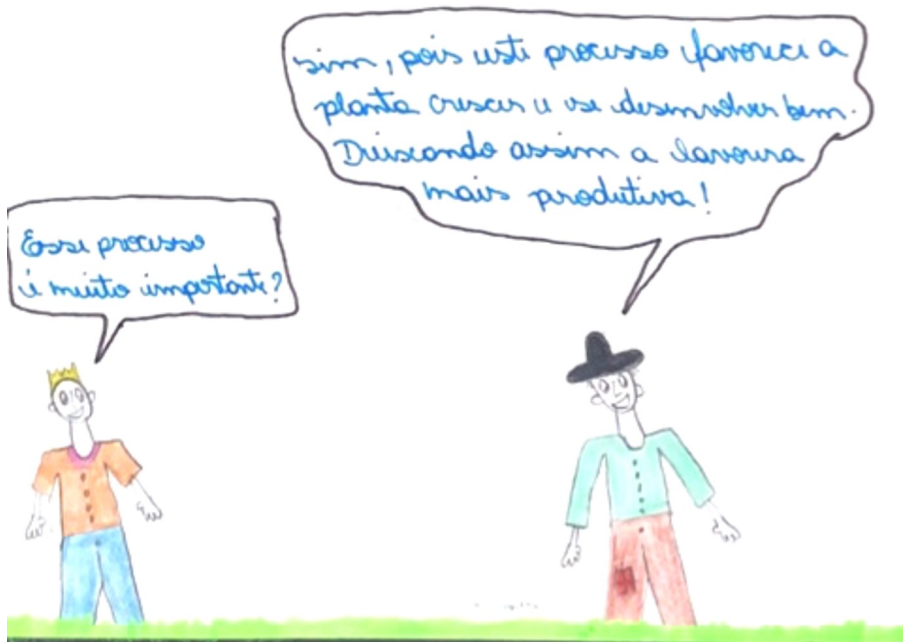 Esse processo
é muito importante?
sim, pois este processo favorece a
planta crescer e se desenvolver bem.
Deixando assim a lavoura
mais produtiva!